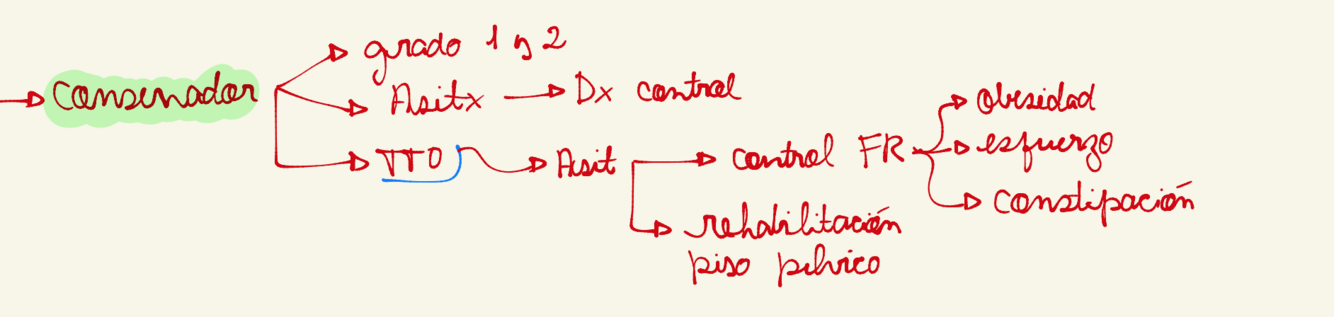 conservador
grado 1 y 2
Asitx → Dx control
TTO → Asit → control FR → obesidad
esfuerzo
constipación
rehabilitación
piso pélvico